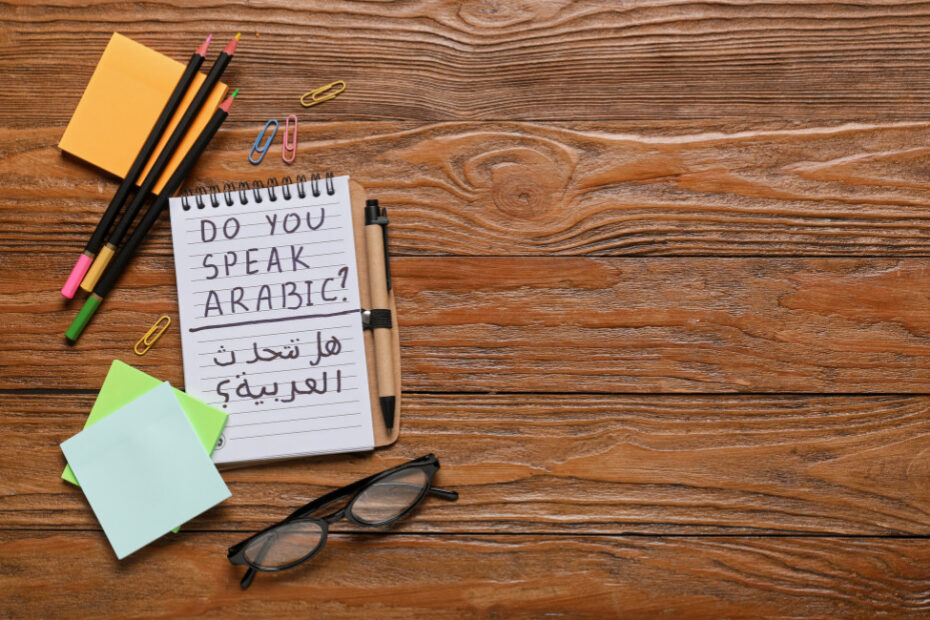 DO YOU
SPEAK
ARABIC?
هل تتحدث
العربية؟